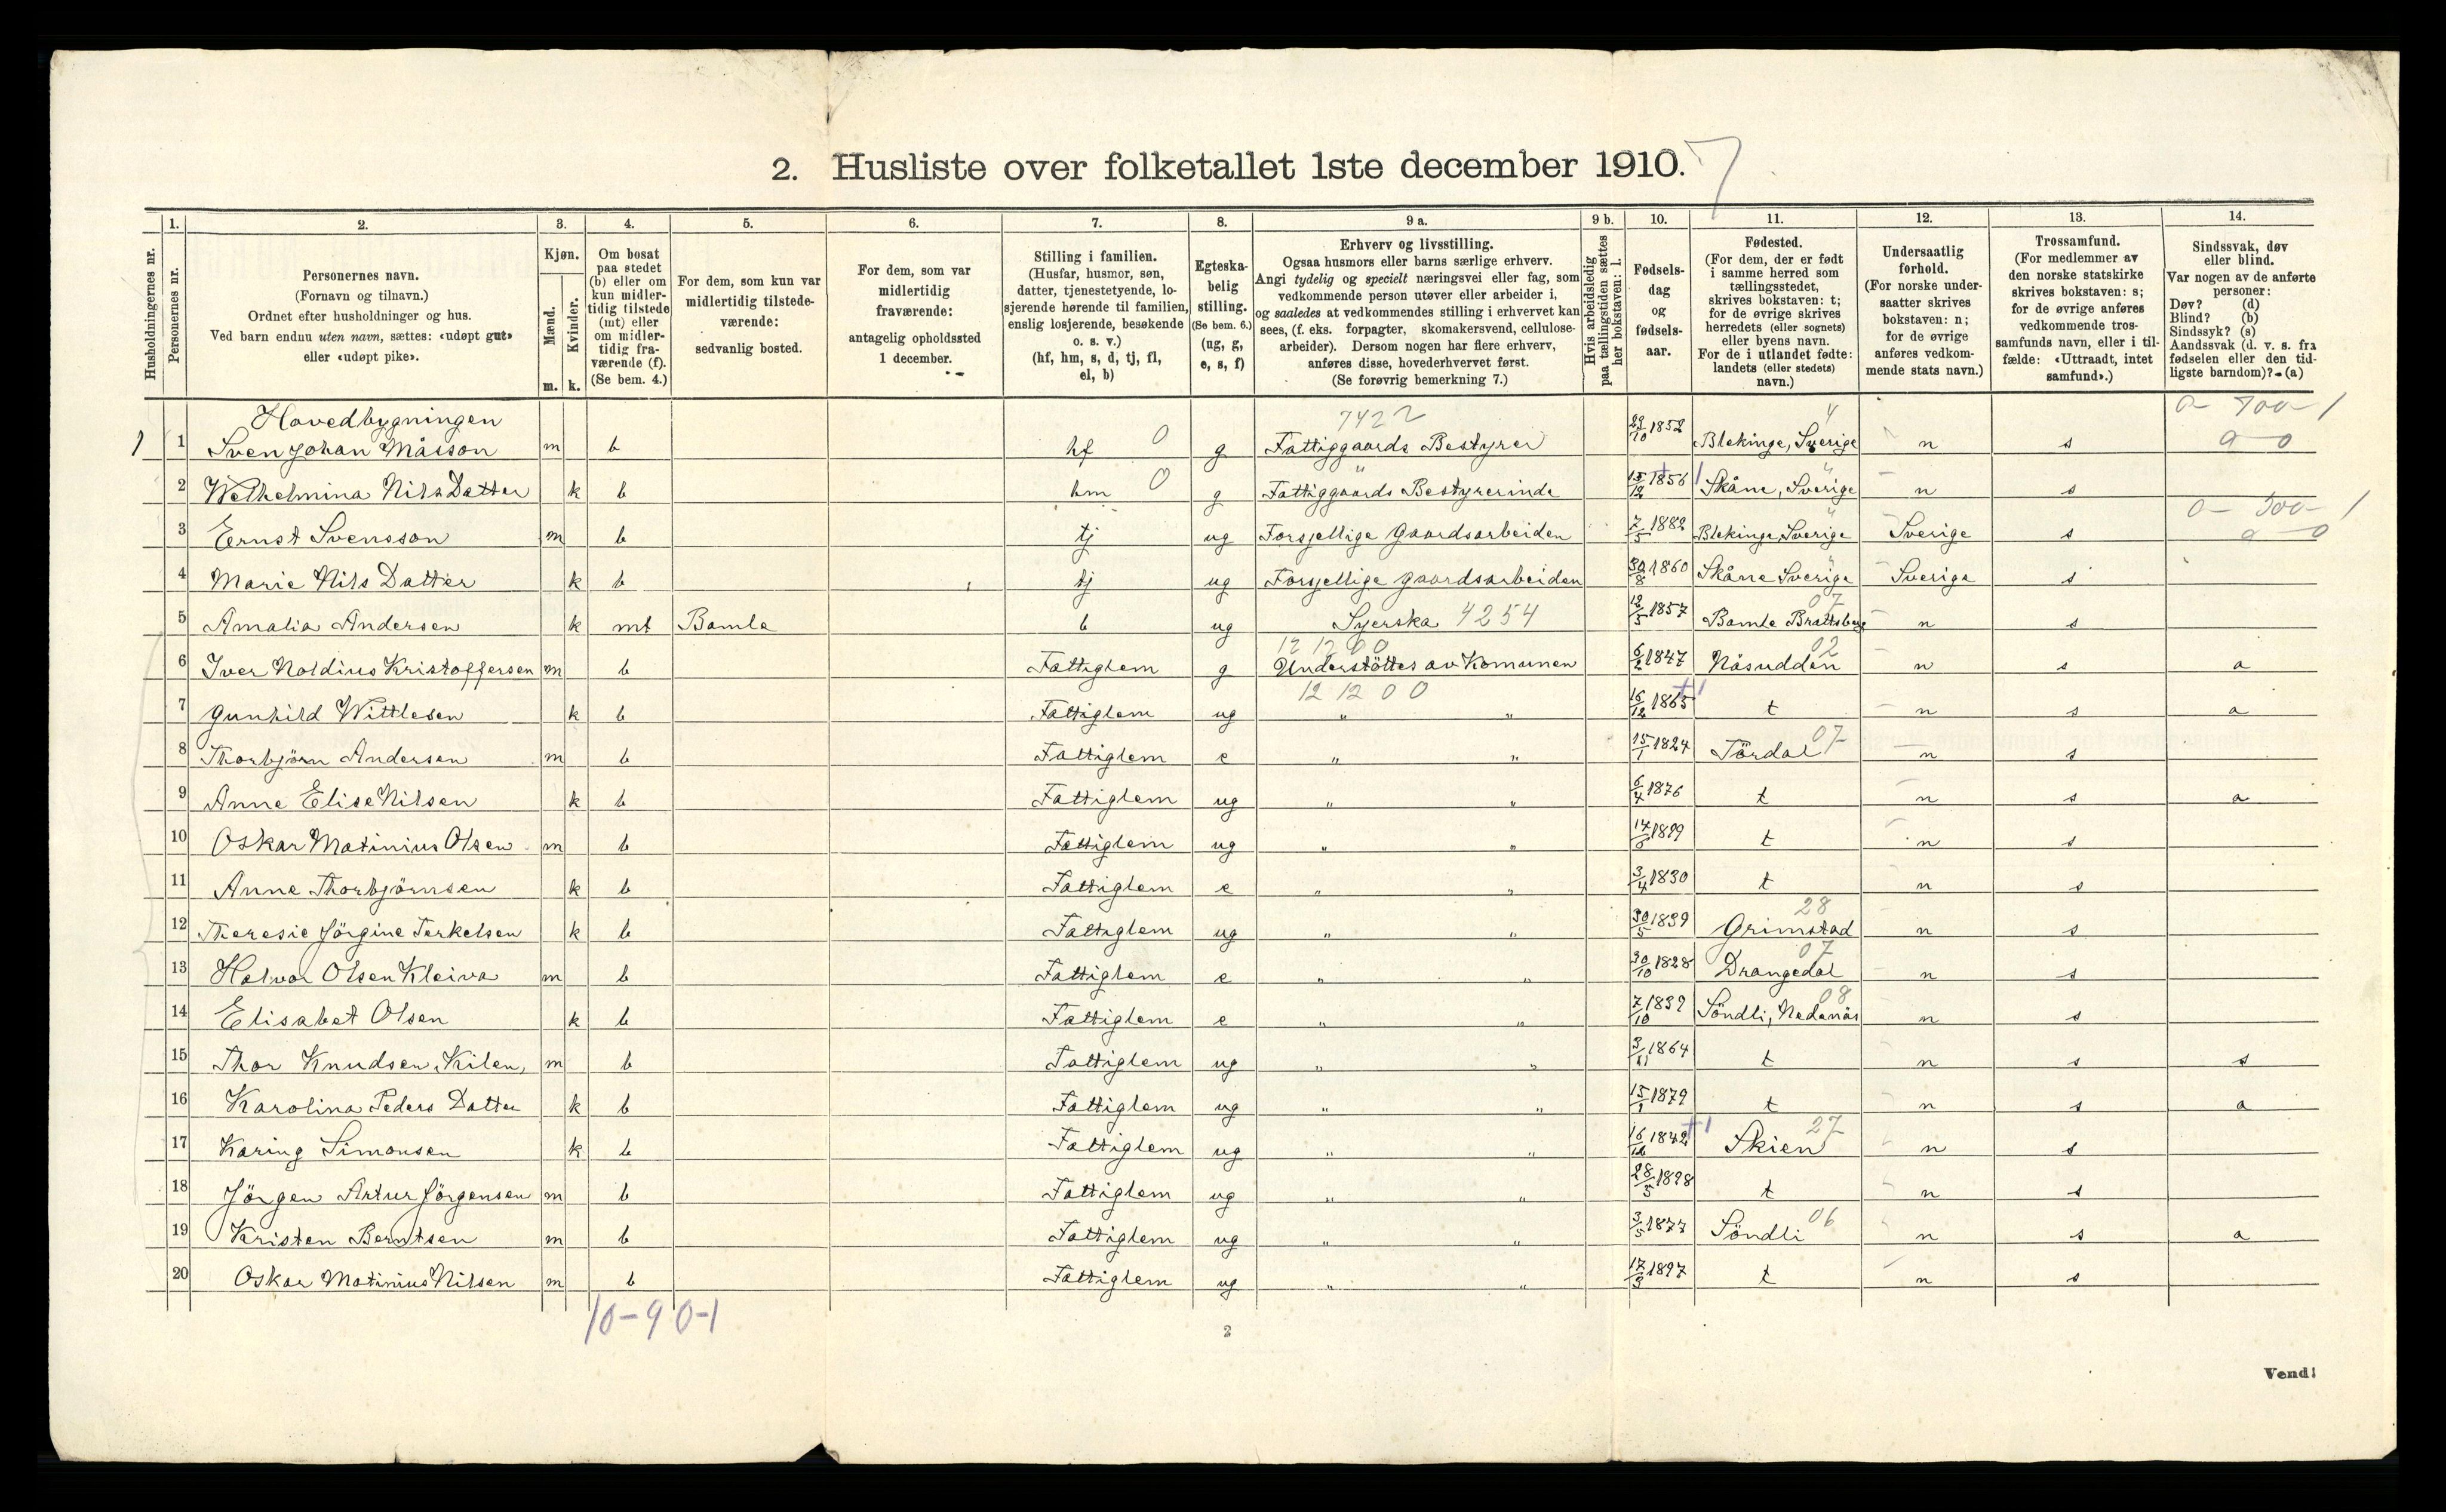 2. Husliste over folketallet 1ste december 1910. 7
Husholdningernes nr.
1. Personernes nr.
2. Personernes navn.
(Fornavn og tilnavn.)
Ordnet efter husholdninger og hus.
Ved barn endnu uten navn, sættes: «udøpt gut»
eller «udøpt pike».
3. Kjøn.
Mænd. m.
Kvinder. k.
4. Om bosat
paa stedet
(b) eller om
kun midler-
tidig tilstede
(mt) eller
om midler-
tidig fra-
værende (f).
(Se bem. 4.)
5. For dem, som kun var
midlertidig tilstede-
værende:
sedvanlig bosted.
6. For dem, som var
midlertidig
fraværende:
antagelig opholdssted
1 december.
7. Stilling i familien.
(Husfar, husmor, søn,
datter, tjenestetyende, lo-
sjerende hørende til familien,
enslig losjerende, besøkende
o. s. v.)
(hf, hm, s, d, tj, fl,
el, b)
8. Egteska-
belig
stilling.
(Se bem. 6.)
(ug, g,
e, s, f)
9 a. Erhverv og livsstilling.
Ogsaa husmors eller barns særlige erhverv.
Angi tydelig og specielt næringsvei eller fag, som
vedkommende person utøver eller arbeider i,
og saaledes at vedkommendes stilling i erhvervet kan
sees, (f. eks. forpagter, skomakersvend, cellulose-
arbeider). Dersom nogen har flere erhverv,
anføres disse, hovederhvervet først.
(Se forøvrig bemerkning 7.)
9 b. Hvis arbeidsledig
paa tællingstiden sættes
her bokstaven: l.
10. Fødsels-
dag
og
fødsels-
aar.
11. Fødested.
(For dem, der er født
i samme herred som
tællingsstedet,
skrives bokstaven: t;
for de øvrige skrives
herredets (eller sognets)
eller byens navn.
For de i utlandet fødte:
landets (eller stedets)
navn.)
12. Undersaatlig
forhold.
(For norske under-
saatter skrives
bokstaven: n;
for de øvrige
anføres vedkom-
mende stats navn.)
13. Trossamfund.
(For medlemmer av
den norske statskirke
skrives bokstaven: s;
for de øvrige anføres
vedkommende tros-
samfunds navn, eller i til-
fælde: «Uttraadt, intet
samfund».)
14. Sindssvak, døv
eller blind.
Var nogen av de anførte
personer:
Døv? (d)
Blind? (b)
Sindssyk? (s)
Aandssvak (d. v. s. fra
fødselen eller den tid-
ligste barndom)? (a)
Hovedbygningen 7422 4
1 1 Sven Johan Måsson m b hf 0 g Fattiggaards Bestyrer 23/10 1852 Blekinge, Sverige n s 0 0
2 Wilhelmina Nils Datter k b hm 0 g Fattiggaards Bestyrerinde 15/12 1856 Skåne, Sverige n s
3 Ernst Svensson m b tj ug Forsjellige Gaardsarbeiden 7/5 1882 Blekinge, Sverige Sverige s
4 Marie Nils Datter k b tj ug Forsjellige gaardsarbeiden 30/8 1860 Skåne Sverige Sverige s
5 Amalia Andersen k mt Bamle b ug Syerska 4254 12/5 1857 Bamle Brattsberg 07 n s
6 Iver Noldius Kristoffersen m b Fattiglem g 12 12 0 0 Understöttes av Komunen 6/2 1847 Näsudden 02 n s a
7 Gunhild Wittlesen k b Fattiglem ug 12 12 0 0 " " 16/12 1865 t n s a
8 Thorbjörn Andersen m b Fattiglem e " " 15/1 1824 Tördal 07 n s
9 Anne Elise Nilsen k b Fattiglem ug " " 6/4 1876 t n s a
10 Oskar Matinius Olsen m b Fattiglem ug " " 1899 t n s
11 Anne Thorbjörnsen k b Fattiglem e " " 3/4 1830 t n s
12 Theresie Jörgine Terkelsen k b Fattiglem ug " " 30/5 1839 Grimstad 28 n s
13 Halvor Olsen Kleiva m b Fattiglem e " " 30/10 1828 Drangedal 07 n s
14 Elisabet Olsen k b Fattiglem e " " 7/10 1839 Söndli, Nedenäs 08 n s
15 Thor Knudsen Kilen, m b Fattiglem ug " " 3/11 1864 t n s s
16 Karolina Peders Datter k b Fattiglem ug " " 15/1 1879 t n s a
17 Karing Simonsen k b Fattiglem ug " " 16/12 1842 Skien 27 n s
18 Jörgen Artur Jörgensen m b Fattiglem ug " " 28/5 1898 t n s
19 Kristen Berntsen m b Fattiglem ug " " 3/5 1877 Söndli 06 n s a
20 Oskar Matinius Nilsen m b Fattiglem ug " " 17/3 1897 t n s
10-9 0-1
2
Vend!